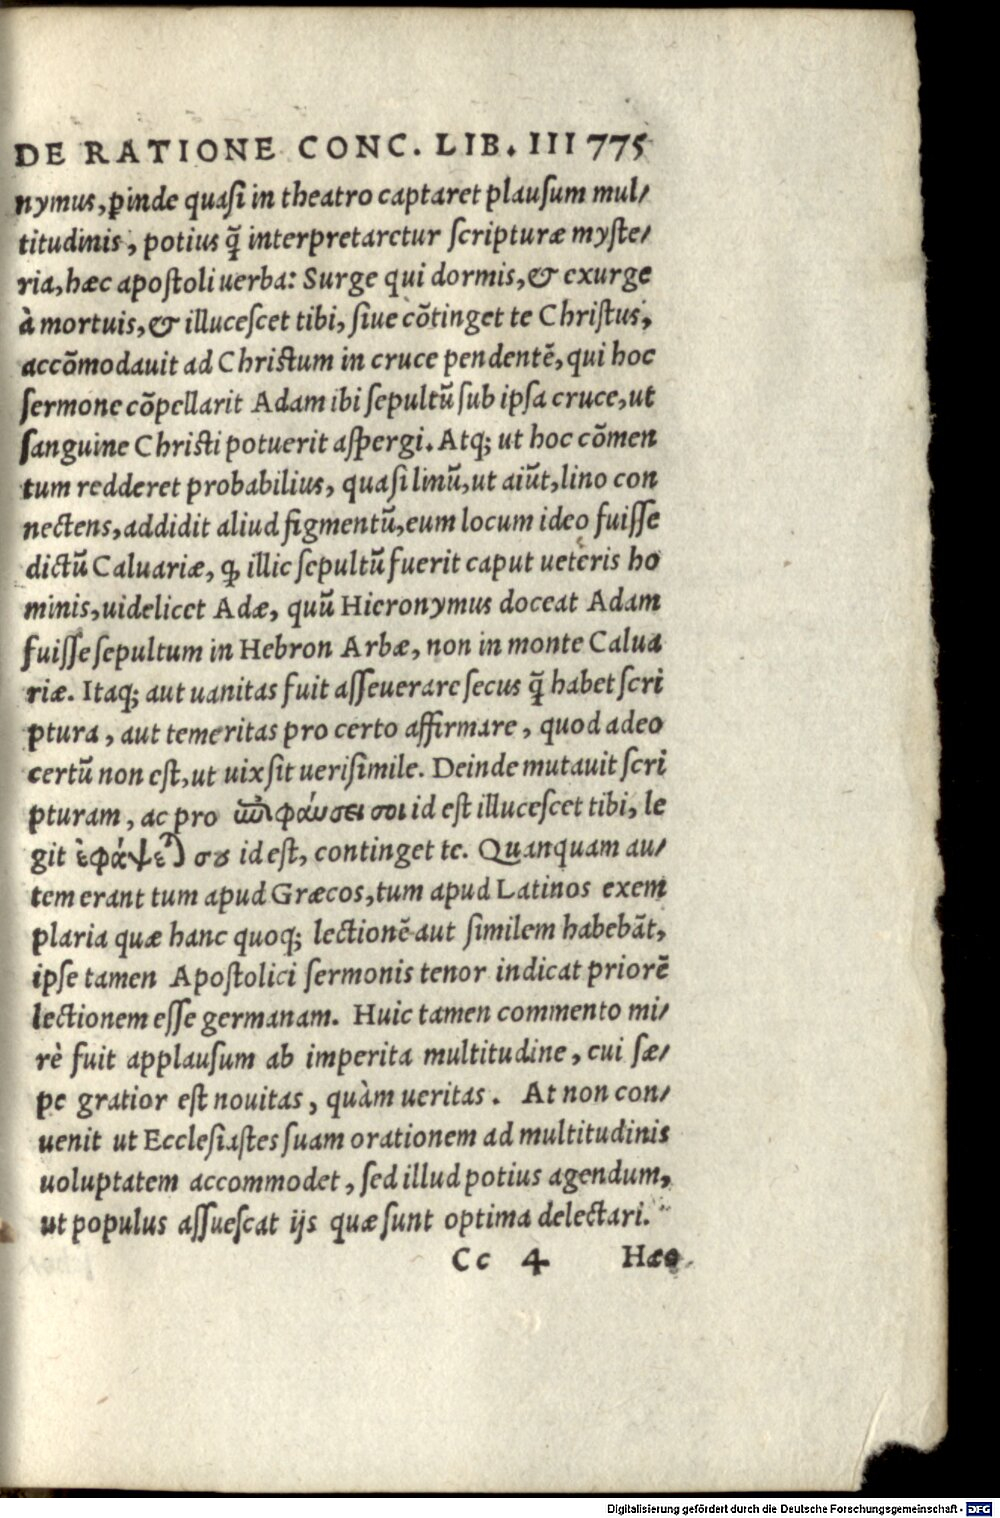 DE RATIONE CONC. LIB. III 775
nymus, ꝑinde quaſi in theatro captaret plauſum mul⸗
titudinis, potius q̃ interpretaretur ſcripturæ myſte⸗
ria, hæc apoſtoli uerba: Surge qui dormis, & exurge
à mortuis, & illuceſcet tibi, ſiue cõtinget te Chriſtus,
accõmodauit ad Chriſtum in cruce pendentẽ, qui hoc
ſermone cõpellarit Adam ibi ſepultũ ſub ipſa cruce, ut
ſanguine Chriſti potuerit aſpergi. Atq; ut hoc cõmen
tum redderet probabilius, quaſi linũ, ut aiũt, lino con
nectens, addidit aliud figmentũ, eum locum ideo fuiſſe
dictũ Caluariæ, ꝙ illic ſepultũ fuerit caput ueteris ho
minis, uidelicet Adæ, quũ Hieronymus doceat Adam
fuiſſe ſepultum in Hebron Arbæ, non in monte Calua
riæ. Itaq; aut uanitas fuit aſſeuerare ſecus q̃ habet ſcri
ptura, aut temeritas pro certo affirmare, quod adeo
certũ non eſt, ut uix ſit ueriſimile. Deinde mutauit ſcri
pturam, ac pro ἐπιφαύσει σοι id eſt illuceſcet tibi, le
git ἐφάψεται σου id eſt, continget te. Quanquam au⸗
tem erant tum apud Græcos, tum apud Latinos exem
plaria quæ hanc quoq; lectionẽ aut ſimilem habebãt,
ipſe tamen Apoſtolici ſermonis tenor indicat priorẽ
lectionem eſſe germanam. Huic tamen commento mi⸗
rè fuit applauſum ab imperita multitudine, cui ſæ⸗
pe gratior eſt nouitas, quàm ueritas. At non con⸗
uenit ut Eccleſiaſtes ſuam orationem ad multitudinis
uoluptatem accommodet, ſed illud potius agendum,
ut populus aſſueſcat ijs quæ ſunt optima delectari.
Cc 4 Hæc
Digitalisierung gefördert durch die Deutsche Forschungsgemeinschaft - DFG